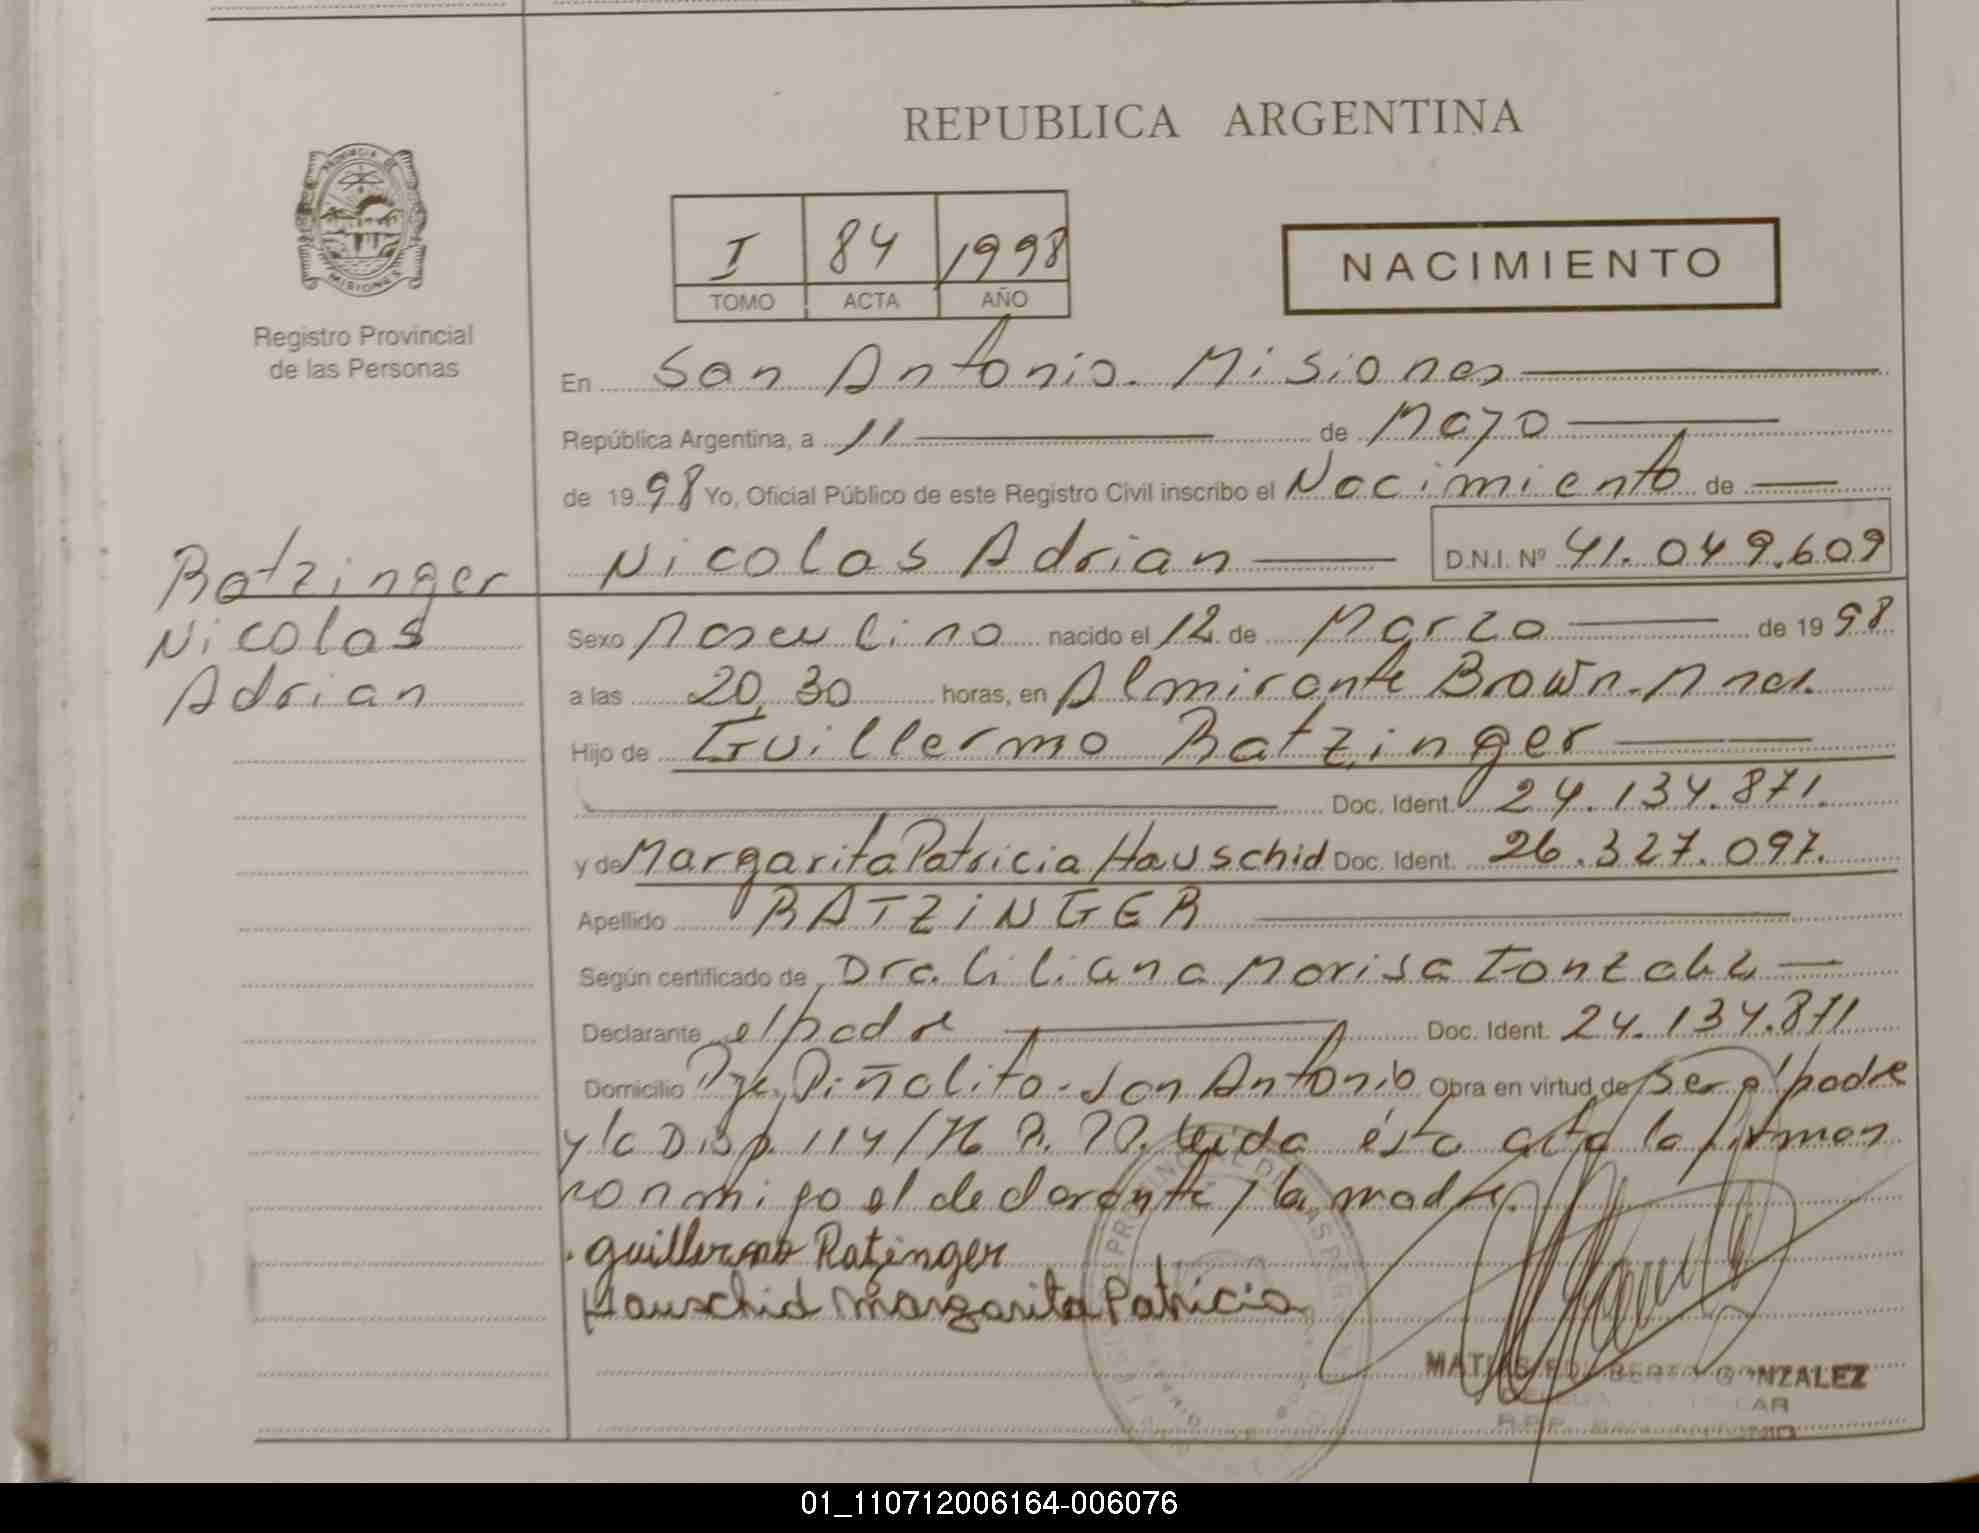 REPUBLICA ARGENTINA
PROVINCIA DE
MISIONES
Registro Provincial
de las Personas
I 84 1998
TOMO ACTA AÑO
NACIMIENTO
En San Antonio. Misiones
República Argentina, a 11 de Mayo
de 1998 Yo, Oficial Público de este Registro Civil inscribo el Nacimiento de
Nicolas Adrian D.N.I. Nº 41.049.609
Ratzinger
Nicolas
Adrian
Sexo Masculino nacido el 12 de Marzo de 1998
a las 20,30 horas, en Almirante Brown. Mnes.
Hijo de Guillermo Ratzinger
Doc. Ident. 24.134.871.
y de Margarita Patricia Hauschid Doc. Ident. 26.327.097.
Apellido RATZINGER
Según certificado de Dra. Liliana Marisa Gonzalez
Declarante el padre Doc. Ident. 24.134.871
Domicilio Pje. Piñalito - San Antonio Obra en virtud de ser el padre
y la Disp. 114/76 R.P.P. leida ésta acta la firman
conmigo el declarante y la madre.
Guillermo Ratzinger
Hauschid Margarita Patricia
MATIAS EDILBERTO GONZALEZ
R.P.P.
01_110712006164-006076